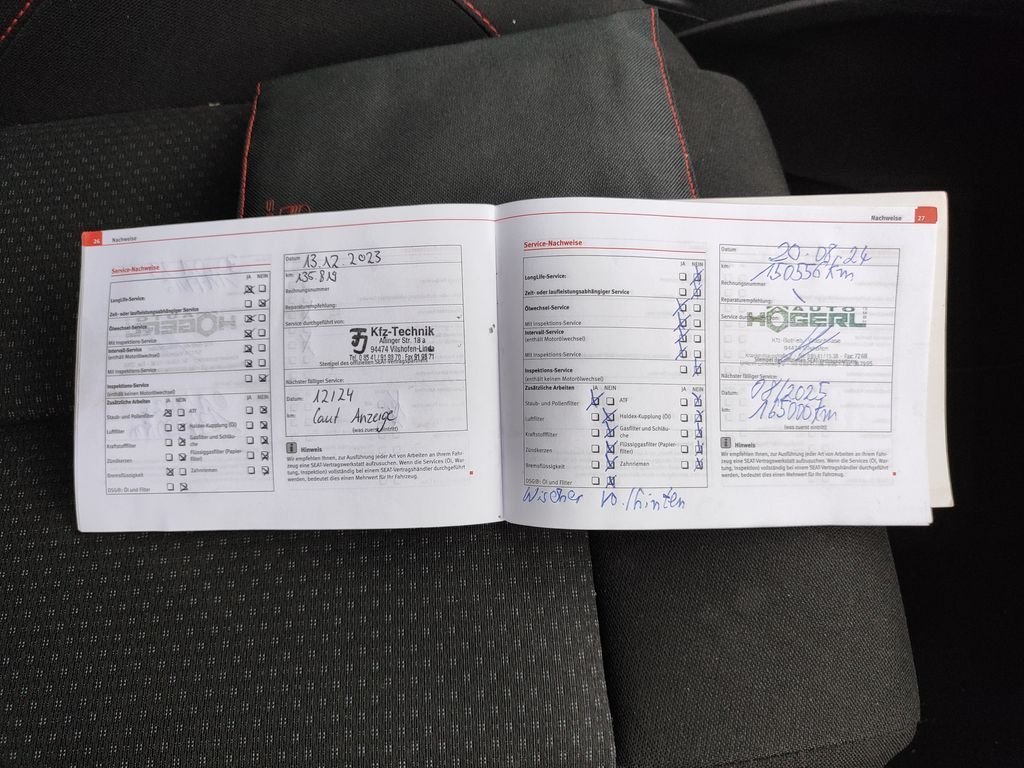 26 Nachweise
Service-Nachweise
JA NEIN
LongLife-Service:
Zeit- oder laufleistungsabhängiger Service
Ölwechsel-Service
Mit Inspektions-Service
Intervall-Service
(enthält Motorölwechsel)
Mit Inspektions-Service
Inspektions-Service
(enthält keinen Motorölwechsel)
Zusätzliche Arbeiten JA NEIN JA NEIN
Staub- und Pollenfilter ATF
Luftfilter Haldex-Kupplung (Öl)
Kraftstofffilter Gasfilter und Schläu-
che
Zündkerzen Flüssiggasfilter (Papier-
filter)
Bremsflüssigkeit Zahnriemen
DSG®: Öl und Filter
Datum 13.12.2023
km: 135.819
Rechnungsnummer
Reparaturempfehlung:
Service durchgeführt von:
Kfz-Technik
Albinger Str. 18 a
94474 Vilshofen-Linda
Tel. 0 85 41 / 91 93 70 · Fax 91 93 71
Stempel des offiziellen SEAT-Vertragspartners
Nächster fälliger Service:
Datum: 12/24
km: laut Anzeige
(was zuerst eintritt)
Hinweis
Wir empfehlen Ihnen, zur Ausführung jeder Art von Arbeiten an Ihrem Fahr-
zeug eine SEAT-Vertragswerkstatt aufzusuchen. Wenn die Services (Öl, War-
tung, Inspektion) vollständig bei einem SEAT-Vertragshändler durchgeführt
werden, bedeutet dies einen Mehrwert für Ihr Fahrzeug.
Nachweise 27
Service-Nachweise
JA NEIN
LongLife-Service:
Zeit- oder laufleistungsabhängiger Service
Ölwechsel-Service
Mit Inspektions-Service
Intervall-Service
(enthält Motorölwechsel)
Mit Inspektions-Service
Inspektions-Service
(enthält keinen Motorölwechsel)
Zusätzliche Arbeiten JA NEIN JA NEIN
Staub- und Pollenfilter ATF
Luftfilter Haldex-Kupplung (Öl)
Kraftstofffilter Gasfilter und Schläu-
che
Zündkerzen Flüssiggasfilter (Papier-
filter)
Bremsflüssigkeit Zahnriemen
DSG®: Öl und Filter
Wischer vo./hinten
Datum: 20.08.24
km: 150556 km
Rechnungsnummer
Reparaturempfehlung:
AUTO
HÖGERL
Stempel des offiziellen SEAT-Vertragspartners
Nächster fälliger Service:
Datum: 08/2025
km: 165000 km
(was zuerst eintritt)
Hinweis
Wir empfehlen Ihnen, zur Ausführung jeder Art von Arbeiten an Ihrem Fahr-
zeug eine SEAT-Vertragswerkstatt aufzusuchen. Wenn die Services (Öl, War-
tung, Inspektion) vollständig bei einem SEAT-Vertragshändler durchgeführt
werden, bedeutet dies einen Mehrwert für Ihr Fahrzeug.